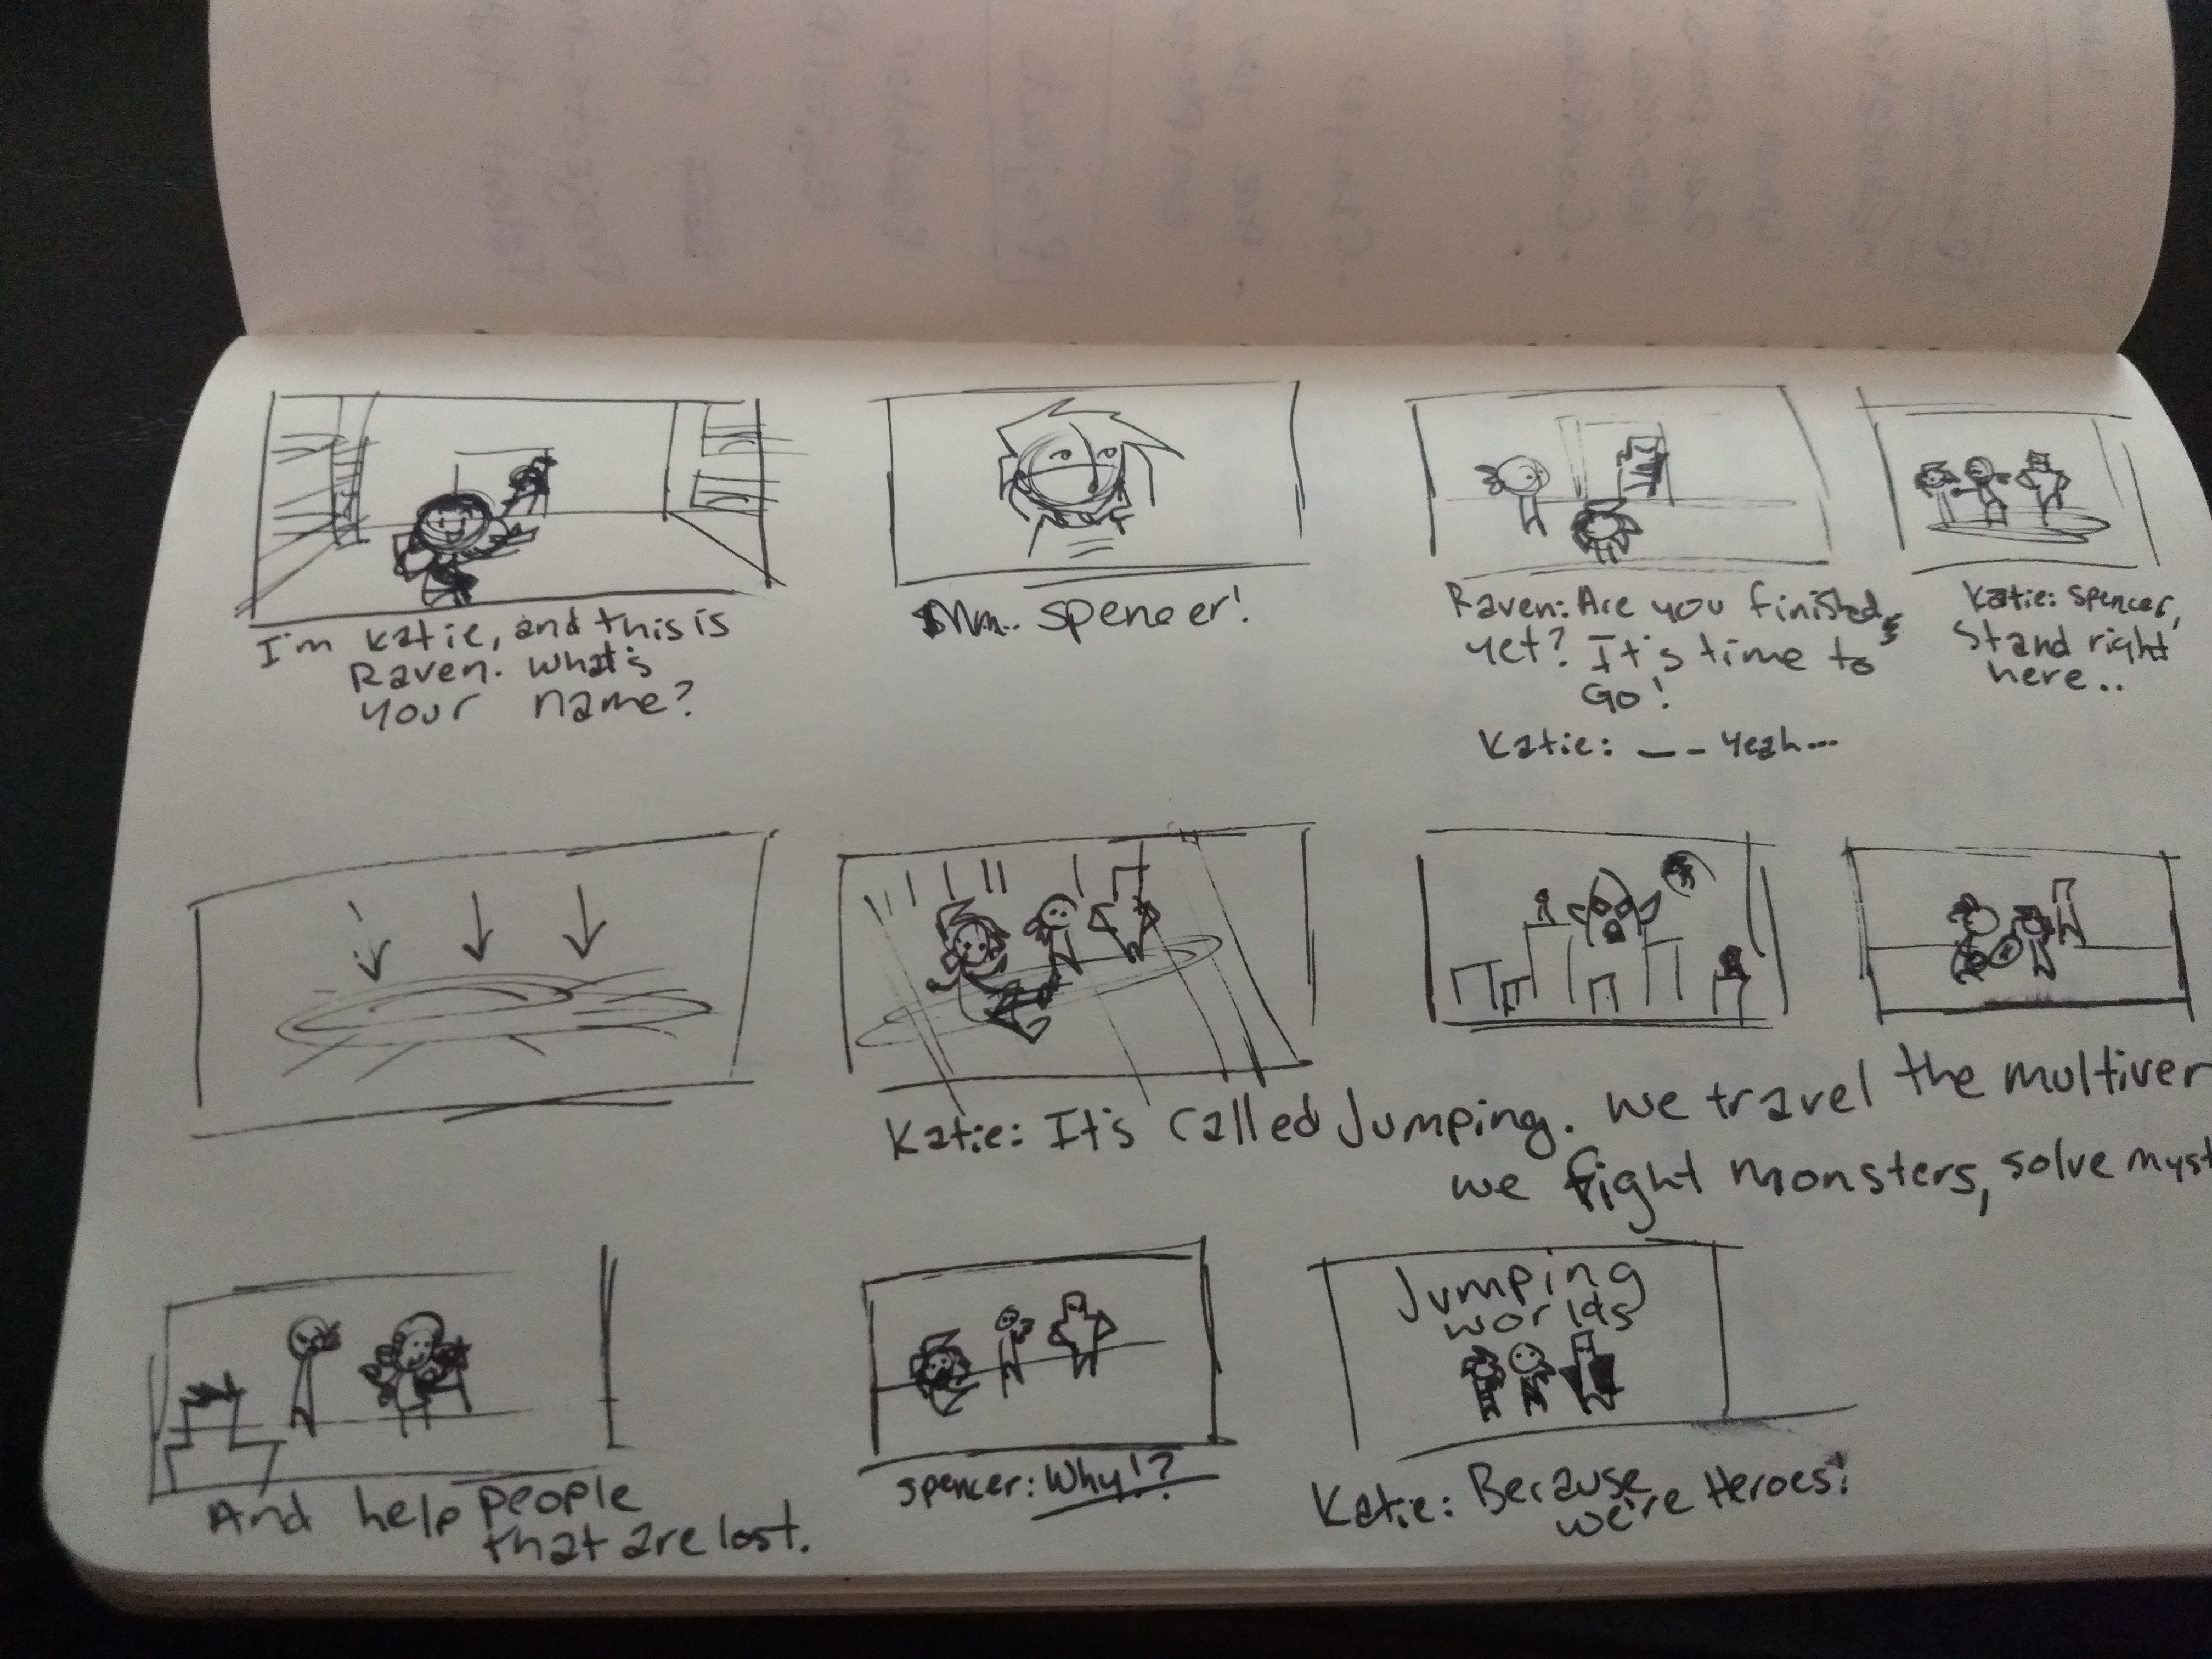 I'm Katie, and this is
Raven. What's
your name?
Mm.. Spencer!
Raven: Are you finished
yet? It's time to
Go!
Katie: _ _ Yeah...
Katie: Spencer,
Stand right
here..
Katie: It's called Jumping. We travel the multiver
we fight monsters, solve myst
And help people
that are lost.
Spencer: Why!?
Jumping
worlds
Katie: Because
we're Heroes!